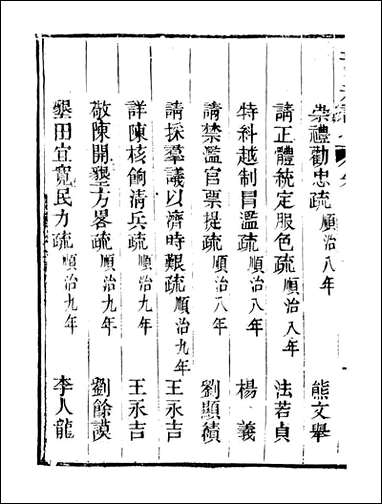 崇禮勸忠疏順治八年 熊文舉
請正體統定服色疏順治八年 法若貞
特科越制冒濫疏順治八年 楊義
請禁濫官票提疏順治八年 劉顯績
請採羣議以濟時艱疏順治九年 王永吉
詳陳核餉清兵疏順治九年 王永吉
敬陳開墾方畧疏順治九年 劉餘謨
墾田宜寬民力疏順治九年 李人龍